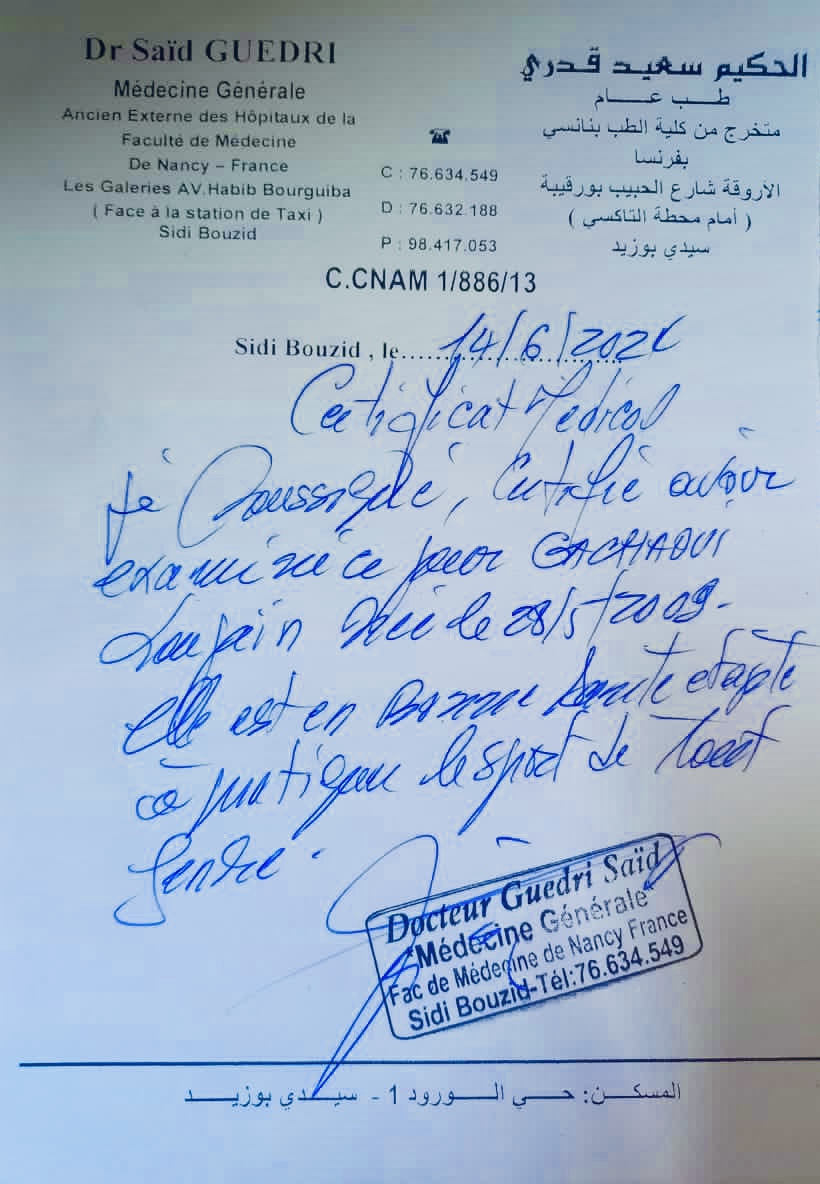 Dr Saïd GUEDRI
Médecine Générale
Ancien Externe des Hôpitaux de la
Faculté de Médecine
De Nancy – France
Les Galeries AV.Habib Bourguiba
( Face à la station de Taxi )
Sidi Bouzid
☎
C : 76.634.549
D : 76.632.188
P : 98.417.053
الحكيم سعيد قدري
طب عام
متخرج من كلية الطب بنانسي
بفرنسا
الأروقة شارع الحبيب بورقيبة
( أمام محطة التاكسي )
سيدي بوزيد
C.CNAM 1/886/13
Sidi Bouzid , le 14/6/202
Certificat Médical
Je Soussigné, Certifie avoir
examiné ce jour GACHAOUI
Loujain Née le 28/5/2009-
elle est en Bonne Santé et apte
à pratiquer le sport de tout
Genre.
Docteur Guedri Saïd
"Médecine Générale"
Fac de Médecine de Nancy France
Sidi Bouzid-Tél:76.634.549
المسكن: حي الورود 1 - سيدي بوزيد